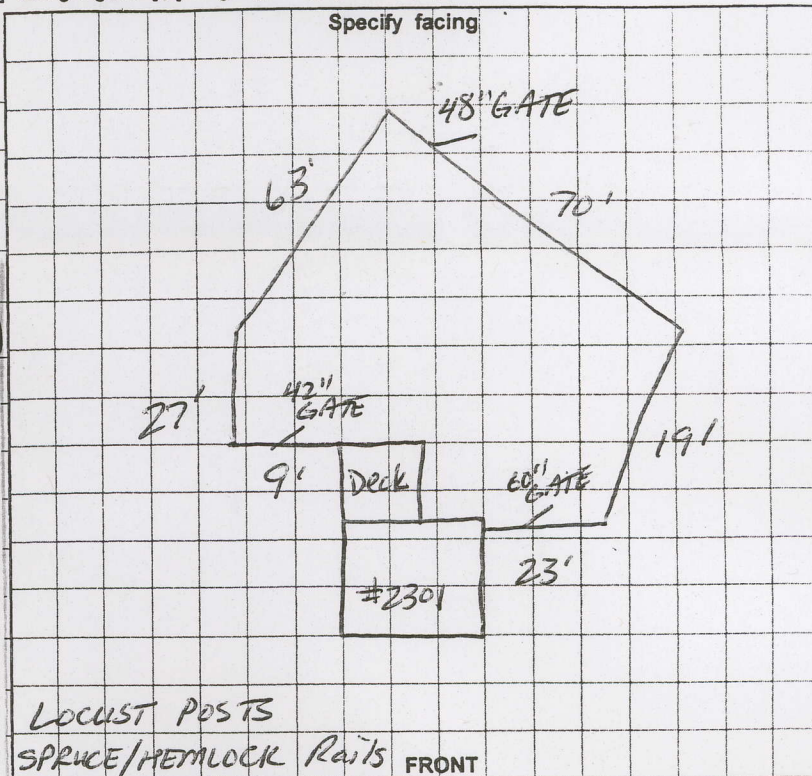 Specify facing
48" GATE
63'
70'
27'
42"
GATE
9'
Deck
60"
GATE
19'
23'
#2301
LOCUST POSTS
SPRUCE/HEMLOCK Rails
FRONT